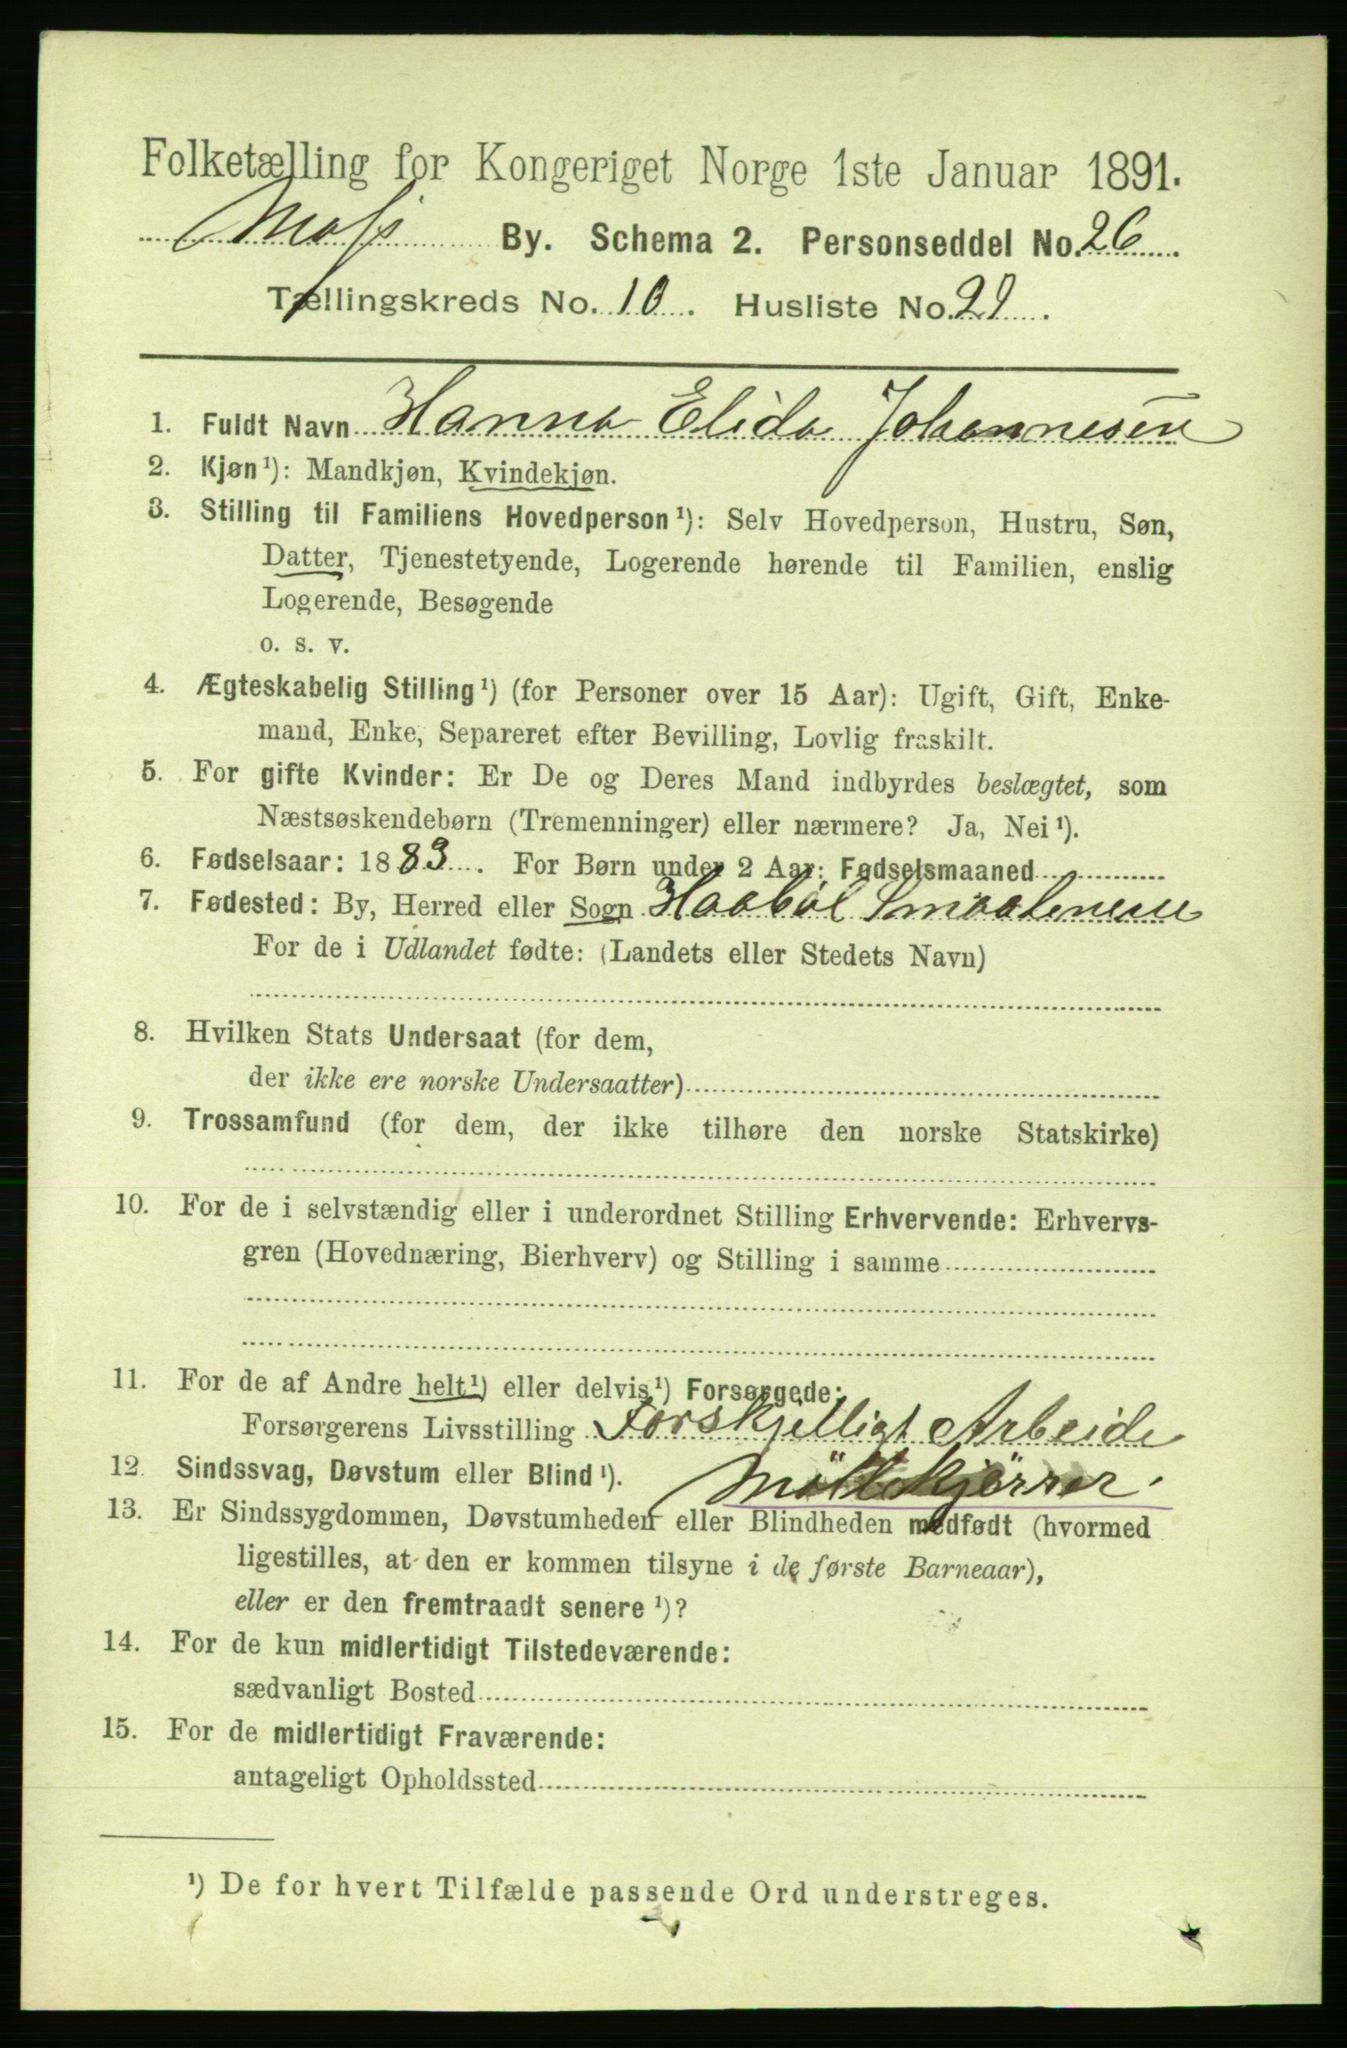 Folketælling for Kongeriget Norge 1ste Januar 1891.
Moss By. Schema 2. Personseddel No. 26
Tællingskreds No. 10. Husliste No. 29.
1. Fuldt Navn Hanna Elida Johannesen
2. Kjøn¹): Mandkjøn, Kvindekjøn.
3. Stilling til Familiens Hovedperson¹): Selv Hovedperson, Hustru, Søn,
Datter, Tjenestetyende, Logerende hørende til Familien, enslig
Logerende, Besøgende
o. s. v.
4. Ægteskabelig Stilling¹) (for Personer over 15 Aar): Ugift, Gift, Enke-
mand, Enke, Separeret efter Bevilling, Lovlig fraskilt.
5. For gifte Kvinder: Er De og Deres Mand indbyrdes beslægtet, som
Næstsøskendebørn (Tremenninger) eller nærmere? Ja, Nei¹).
6. Fødselsaar: 1883. For Børn under 2 Aar: Fødselsmaaned
7. Fødested: By, Herred eller Sogn Haaböl Smaalenene
For de i Udlandet fødte: (Landets eller Stedets Navn)
8. Hvilken Stats Undersaat (for dem,
der ikke ere norske Undersaatter)
9. Trossamfund (for dem, der ikke tilhøre den norske Statskirke)
10. For de i selvstændig eller i underordnet Stilling Erhvervende: Erhvervs-
gren (Hovednæring, Bierhverv) og Stilling i samme
11. For de af Andre helt¹) eller delvis¹) Forsørgede:
Forsørgerens Livsstilling Forskjelligt Arbeide
12. Sindssvag, Døvstum eller Blind¹). Möllekjörrer.
13. Er Sindssygdommen, Døvstumheden eller Blindheden medfødt (hvormed
ligestilles, at den er kommen tilsyne i de første Barneaar),
eller er den fremtraadt senere¹)?
14. For de kun midlertidigt Tilstedeværende:
sædvanligt Bosted
15. For de midlertidigt Fraværende:
antageligt Opholdssted
¹) De for hvert Tilfælde passende Ord understreges.